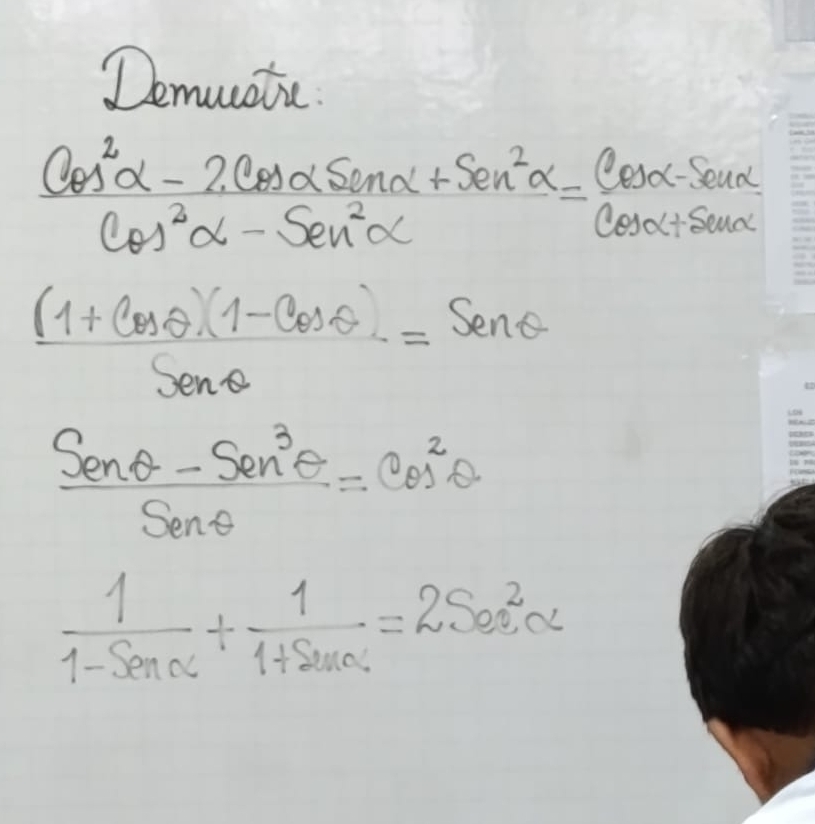 Demuestre:
Cos²α - 2.Cosα Senα + Sen²α = Cosα - Senα
Cos²α - Sen²α Cosα + Senα
(1 + Cosθ)(1 - Cosθ) = Senθ
Senθ
Senθ - Sen³θ = Cos²θ
Senθ
1 + 1 = 2Sec²α
1 - Senα 1 + Senα